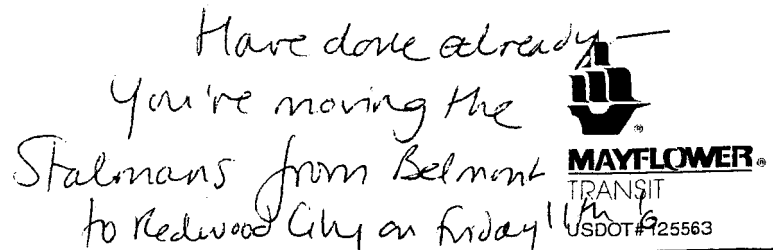 Have done already —
You're moving the
Stalmans from Belmont
to Redwood City on Friday 11th
MAYFLOWER®
TRANSIT
USDOT#125563